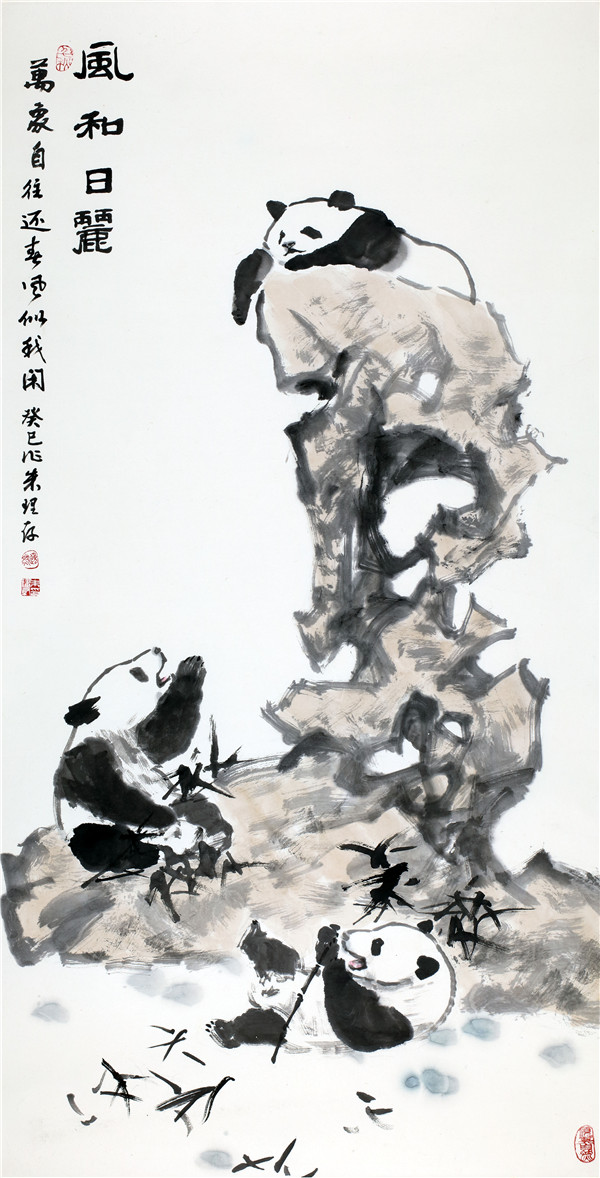 風和日麗
萬象自往还春风似我闲癸巳作朱理存